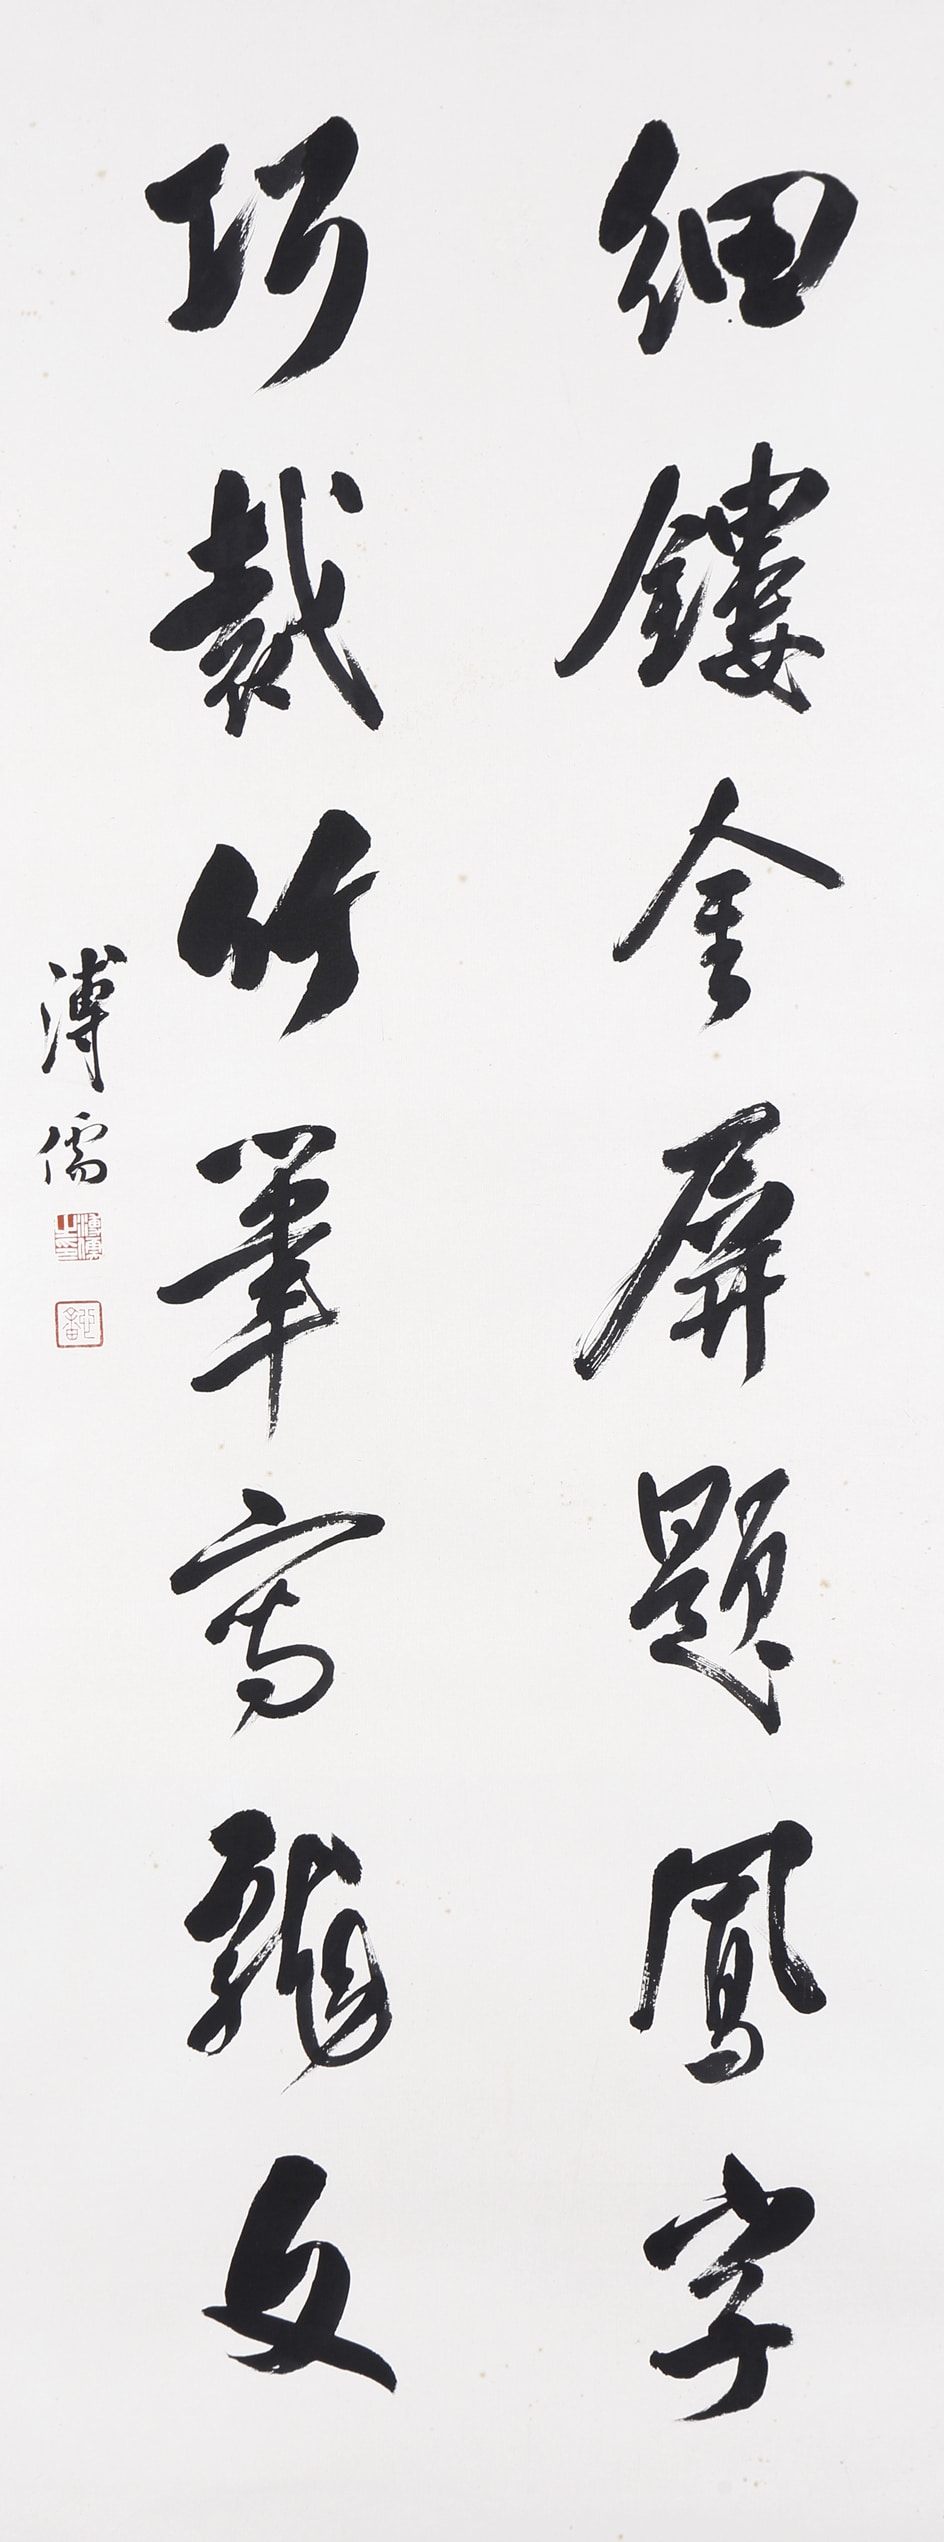 細鏤金屏題鳳字
巧裁竹筆寫龍文
溥儒
溥儒之印